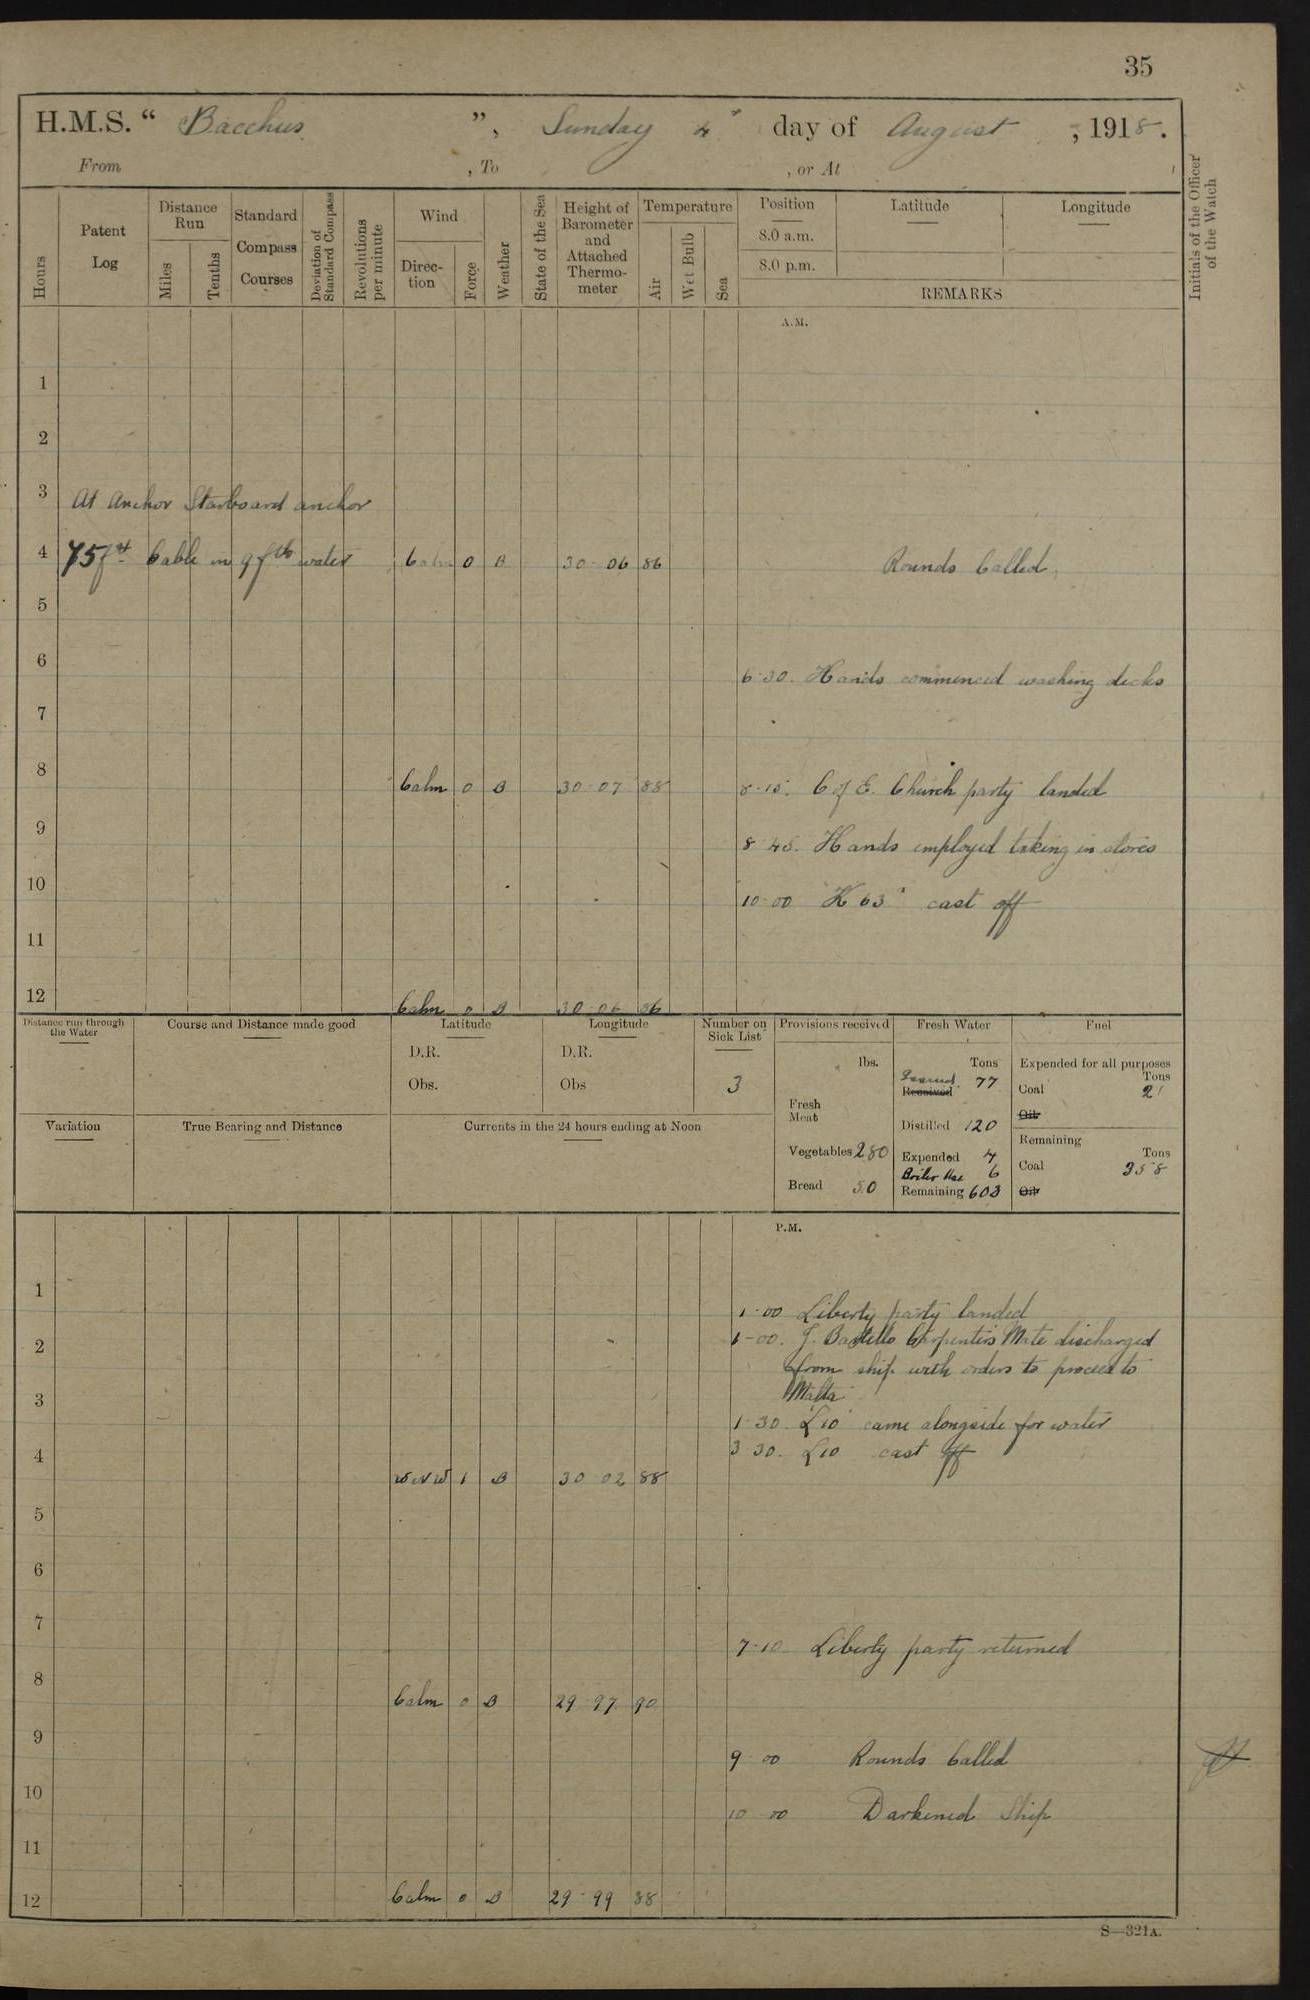 35
H.M.S. “ Bacchus ”, Sunday 4th day of August , 1918.
From , To , or At
Hours
Patent Log
Distance Run
Miles
Tenths
Standard Compass Courses
Deviation of Standard Compass
Revolutions per minute
Wind
Direction
Force
Weather
State of the Sea
Height of Barometer and Attached Thermometer
Temperature
Air
Wet Bulb
Sea
Position
8.0 a.m.
8.0 p.m.
Latitude
Longitude
REMARKS
Initials of the Officer of the Watch
A.M.
1
2
3 At Anchor Starboard anchor
4 75 fm Cable in 9 fth water Calm 0 B 30 06 86 Rounds Called
5
6 6.30. Hands commenced washing decks
7
8 Calm 0 B 30 07 88 8.15. C of E. Church party landed
9 8 45. Hands employed taking in stores
10 10 00 "K 63" cast off
11
12 Calm 0 B 30 06 86
Distance run through the Water
Course and Distance made good
Latitude
D.R.
Obs.
Longitude
D.R.
Obs
Number on Sick List
3
Provisions received
lbs.
Fresh Meat
Vegetables 280
Bread 50
Fresh Water
Tons
Issued 77
Received
Distilled 120
Expended 4
Boiler Use 6
Remaining 603
Fuel
Expended for all purposes
Tons
Coal 21
Oil
Remaining
Tons
Coal 358
Oil
Variation
True Bearing and Distance
Currents in the 24 hours ending at Noon
P.M.
1 1-00 Liberty party landed
2 1-00. J. Bastello Carpenters Mate discharged
from ship with orders to proceed to
3 Malta
1 30. "L10" came alongside for water
4 3 30. L10 cast off
WNW 1 B 30 02 88
5
6
7 7-10 Liberty party returned
8 Calm 0 B 29 97 90
9 9 00 Rounds Called
10 10 00 Darkened Ship
11
12 Calm 0 B 29 99 88
S—321A.